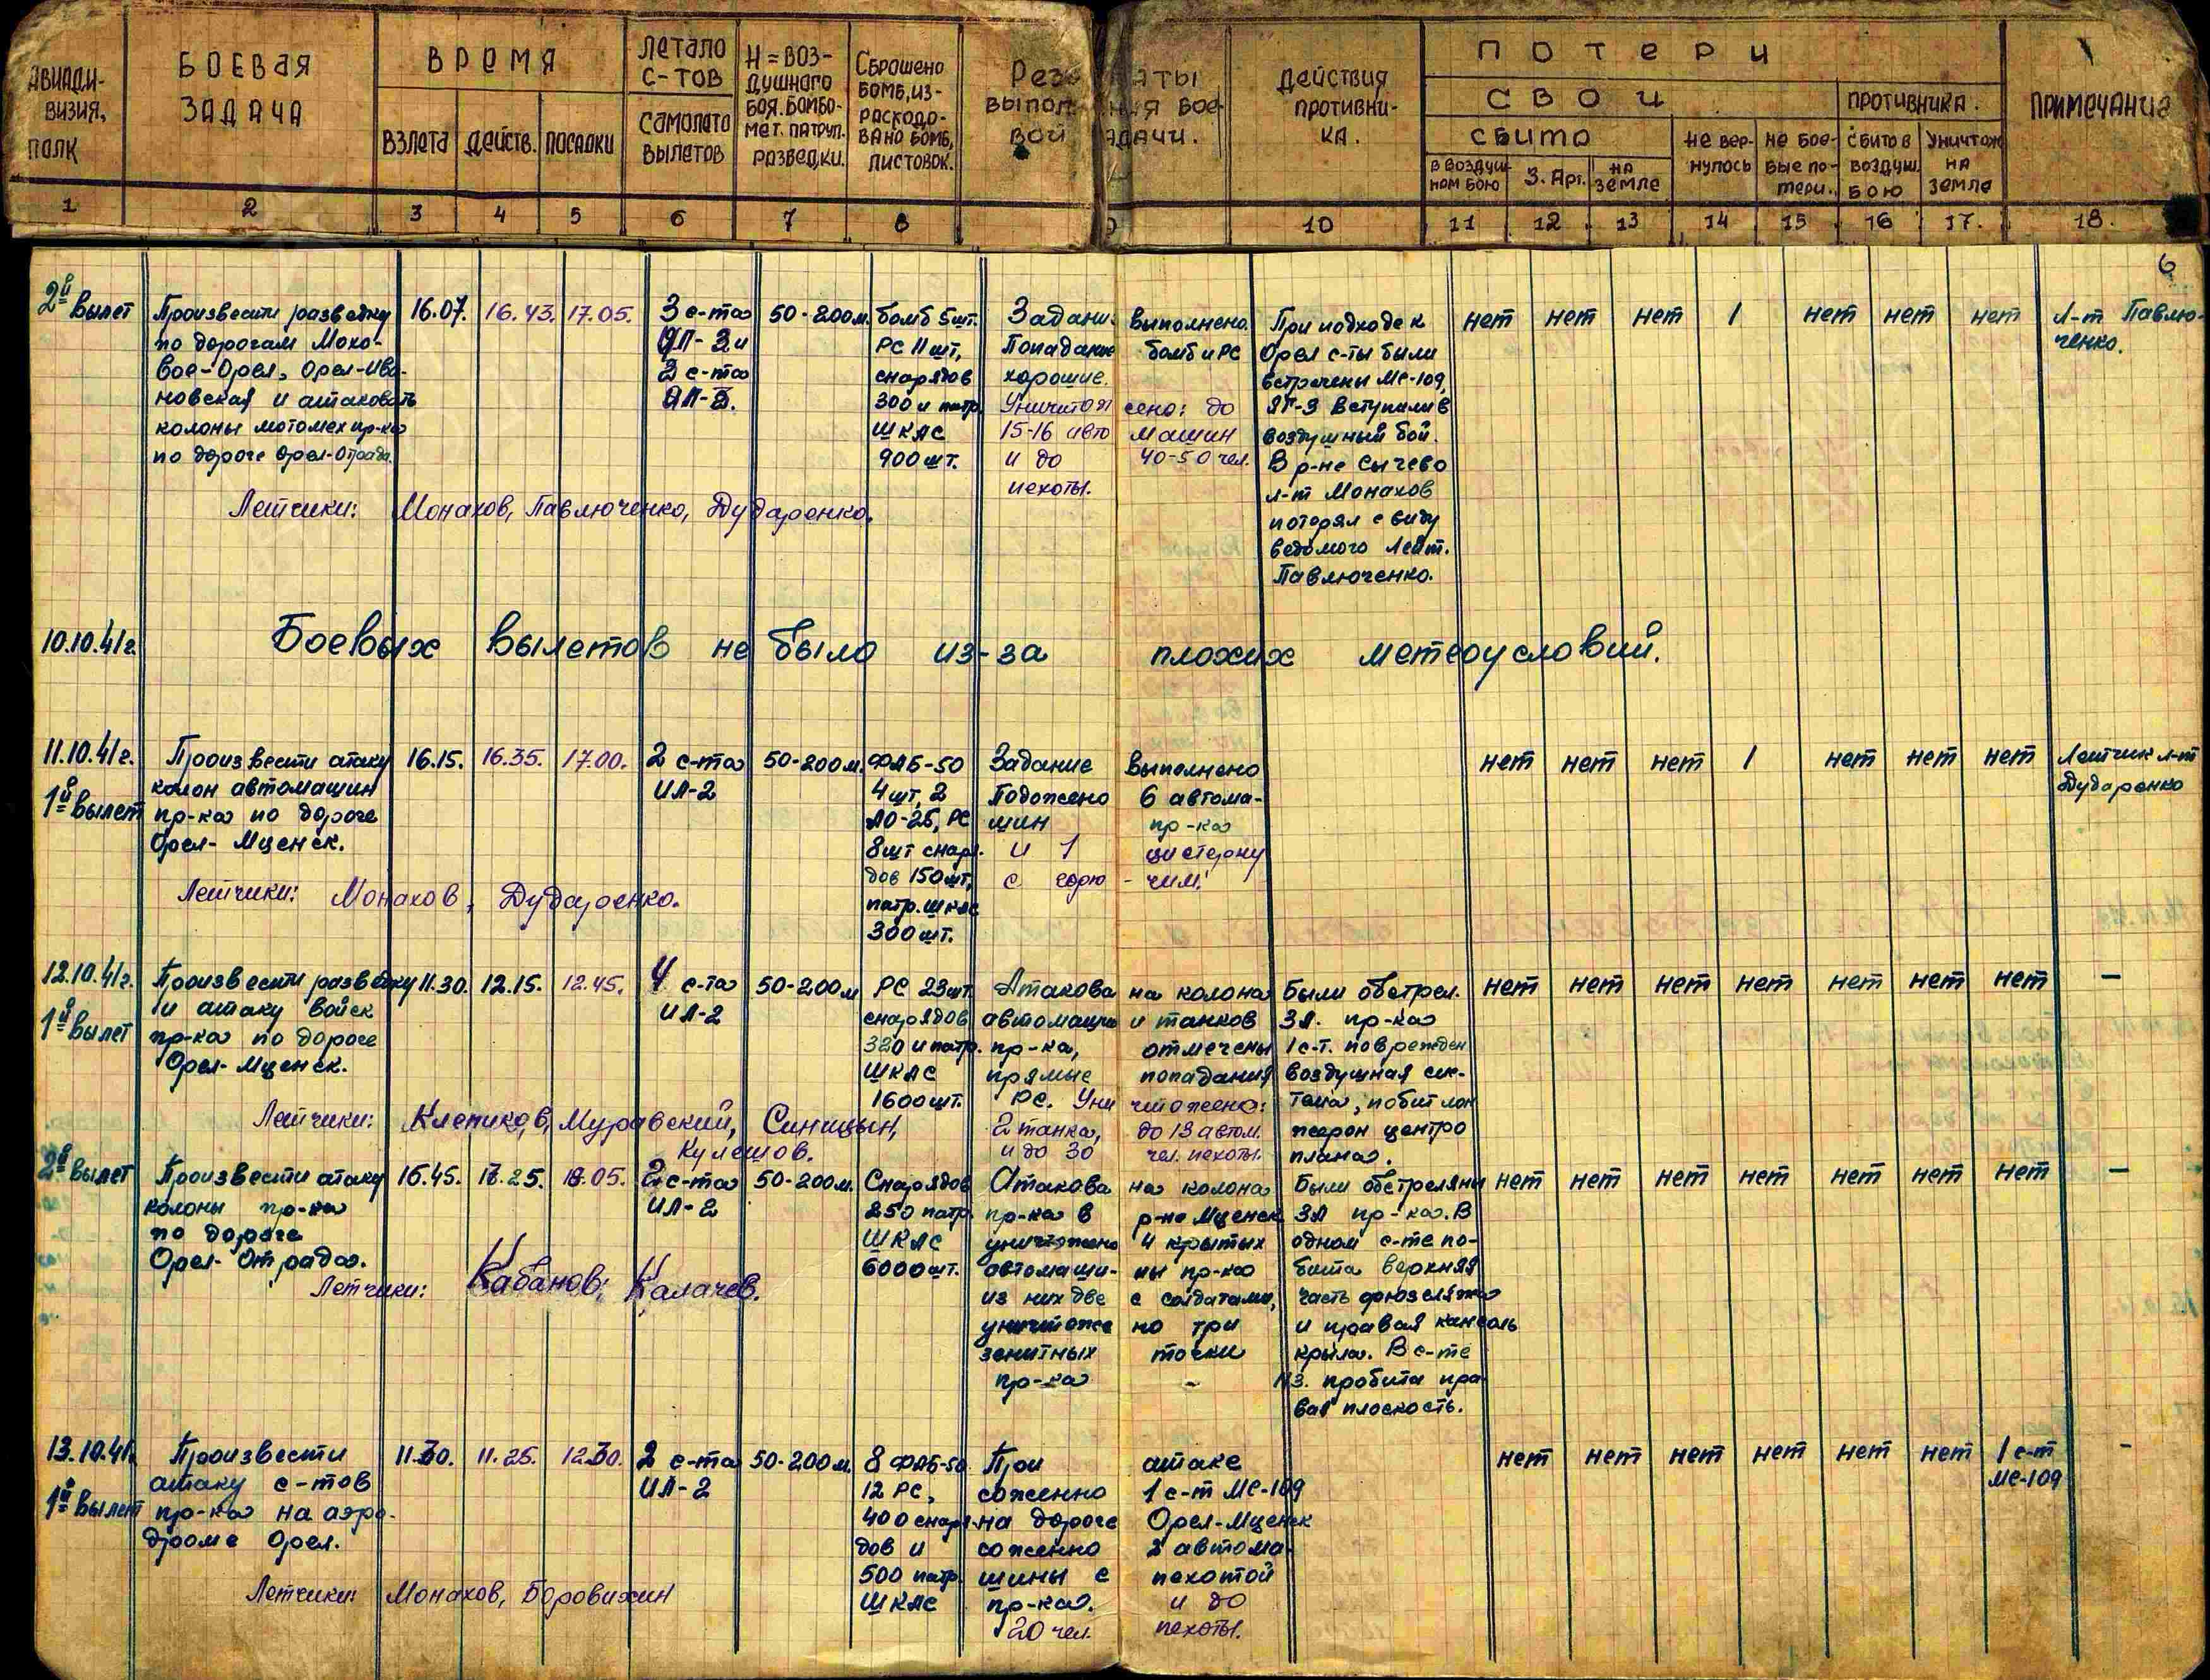 АВИАДИ-
ВИЗИЯ,
ПОЛК
БОЕВАЯ
ЗАДАЧА
ВРЕМЯ
ВЗЛЕТА ДЕЙСТВ. ПОСАДКИ
ЛЕТАЛО
С-ТОВ
САМОЛЕТО
ВЫЛЕТОВ
Н = ВОЗ-
ДУШНОГО
БОЯ. БОМБО-
МЕТ. ПАТРУЛ.
РАЗВЕДКИ.
СБРОШЕНО
БОМБ, ИЗ-
РАСХОДО-
ВАНО БОМБ,
ЛИСТОВОК.
Рез АТЫ
ВЫПОЛ НИЯ БОЕ-
ВОЙ АДАЧИ.
ДЕЙСТВИЯ
ПРОТИВНИ-
КА.
ПОТЕРИ
СВОИ
СБИТО
В ВОЗДУШ-
НОМ БОЮ
З. АРТ.
НА
ЗЕМЛЕ
НЕ ВЕР-
НУЛОСЬ
НЕ БОЕ-
ВЫЕ ПО-
ТЕРИ.
ПРОТИВНИКА.
СБИТО В
ВОЗДУШ.
БОЮ
УНИЧТОЖ
НА
ЗЕМЛЕ
ПРИМЕЧАНИЕ
1 2 3 4 5 6 7 8 9 10 11 12 13 14 15 16 17. 18.
6
2й вылет
Произвести разведку
по дорогам Мохо-
вое-Орел, Орел-Ива-
новская и атаковать
колоны мотомех пр-ка
по дороге Орел-Отрада.
16.07. 16.43. 17.05.
3 с-та
3 и
2 с-та
50-200м.
бомб 5шт.
РС 11 шт,
снарядов
300 и патр
ШКАС
900 шт.
Задани. Выполнено.
Попадание бомб и РС
хорошие.
Уничтож ено: до
15-16 авто машин
и до 40-50 чел.
пехоты.
При подходе к
Орел с-ты были
встречены МЕ-109,
вступили в
воздушный бой.
В р-не Сычево
л-т Монахов
потерял с виду
ведомого Лейт.
Павлюченко.
нет нет нет 1 нет нет нет
л-т Павлю-
ченко.
Летчики: Монахов, Павлюченко, Дударенко.
10.10.41г. Боевых вылетов не было из-за плохих метеоусловий.
11.10.41г.
1й вылет
Произвести атаку
колон автомашин
пр-ка по дороге
Орел-Мценск.
16.15. 16.35. 17.00.
2 с-та
ИЛ-2
50-200м.
ФАБ-50
4шт, 2
АО-25, РС
8шт снаря-
дов 150шт,
патр. ШКАС
300шт.
Задание Выполнено
Подожено 6 автома-
шин пр-ка
и 1 цистерну
с горю - чим.
нет нет нет 1 нет нет нет
Летчик л-т
Дударенко
Летчики: Монахов, Дударенко.
12.10.41г.
1й вылет
Произвести разведку
и атаку войск
пр-ка по дороге
Орел-Мценск.
11.30. 12.15. 12.45.
4 с-та
ИЛ-2
50-200м
РС 23шт.
снарядов
320 и патр.
ШКАС
1600шт.
Атакова на колона
автомаши и танков
пр-ка, отмечены
прямые попадания
РС. Уни чтожено:
2 танка, до 13 автом.
и до 30 чел. пехоты.
Были обстрел.
ЗА. пр-ка
1 с-т. поврежден
воздушная сис-
тема, побит лон
жерон центро
плана.
нет нет нет нет нет нет нет –
Летчики: Клепиков, Муравский, Синицын,
Кулешов.
2й вылет
Произвести атаку
колоны пр-ка
по дороге
Орел-Отрада.
16.45. 17.25. 18.05.
2 с-та
ИЛ-2
50-200м.
Снарядов
250 патр.
ШКАС
6000шт.
Атакова на колона
пр-ка в р-не Мценск
уничтожено 4 крытых
автомаши- ны пр-ка
из них две с солдатами,
уничтоже но три
зенитных точки
пр-ка -
Были обстреляны
ЗА пр-ка. В
одном с-те по-
бита верхняя
часть фюзеляжа
и правая консоль
крыла. В с-те
пробита пра
вая плоскость.
нет нет нет нет нет нет нет –
Летчики: Кабанов; Калачев.
13.10.41г.
1й вылет
Произвести
атаку с-тов
пр-ка на аэро-
дроме Орел.
11.25.
2 с-та
ИЛ-2
50-200м.
8 ФАБ-50
12 РС,
400 снаря-
дов и
500 патр.
ШКАС
При атаке
сожженно 1 с-т МЕ-109
на дороге Орел-Мценск
сожженно 2 автома-
шины с пехотой
пр-ка. и до
20 чел. пехоты.
нет нет нет нет нет нет
1 с-т
МЕ-109
-
Летчики: Монахов, Боровихин